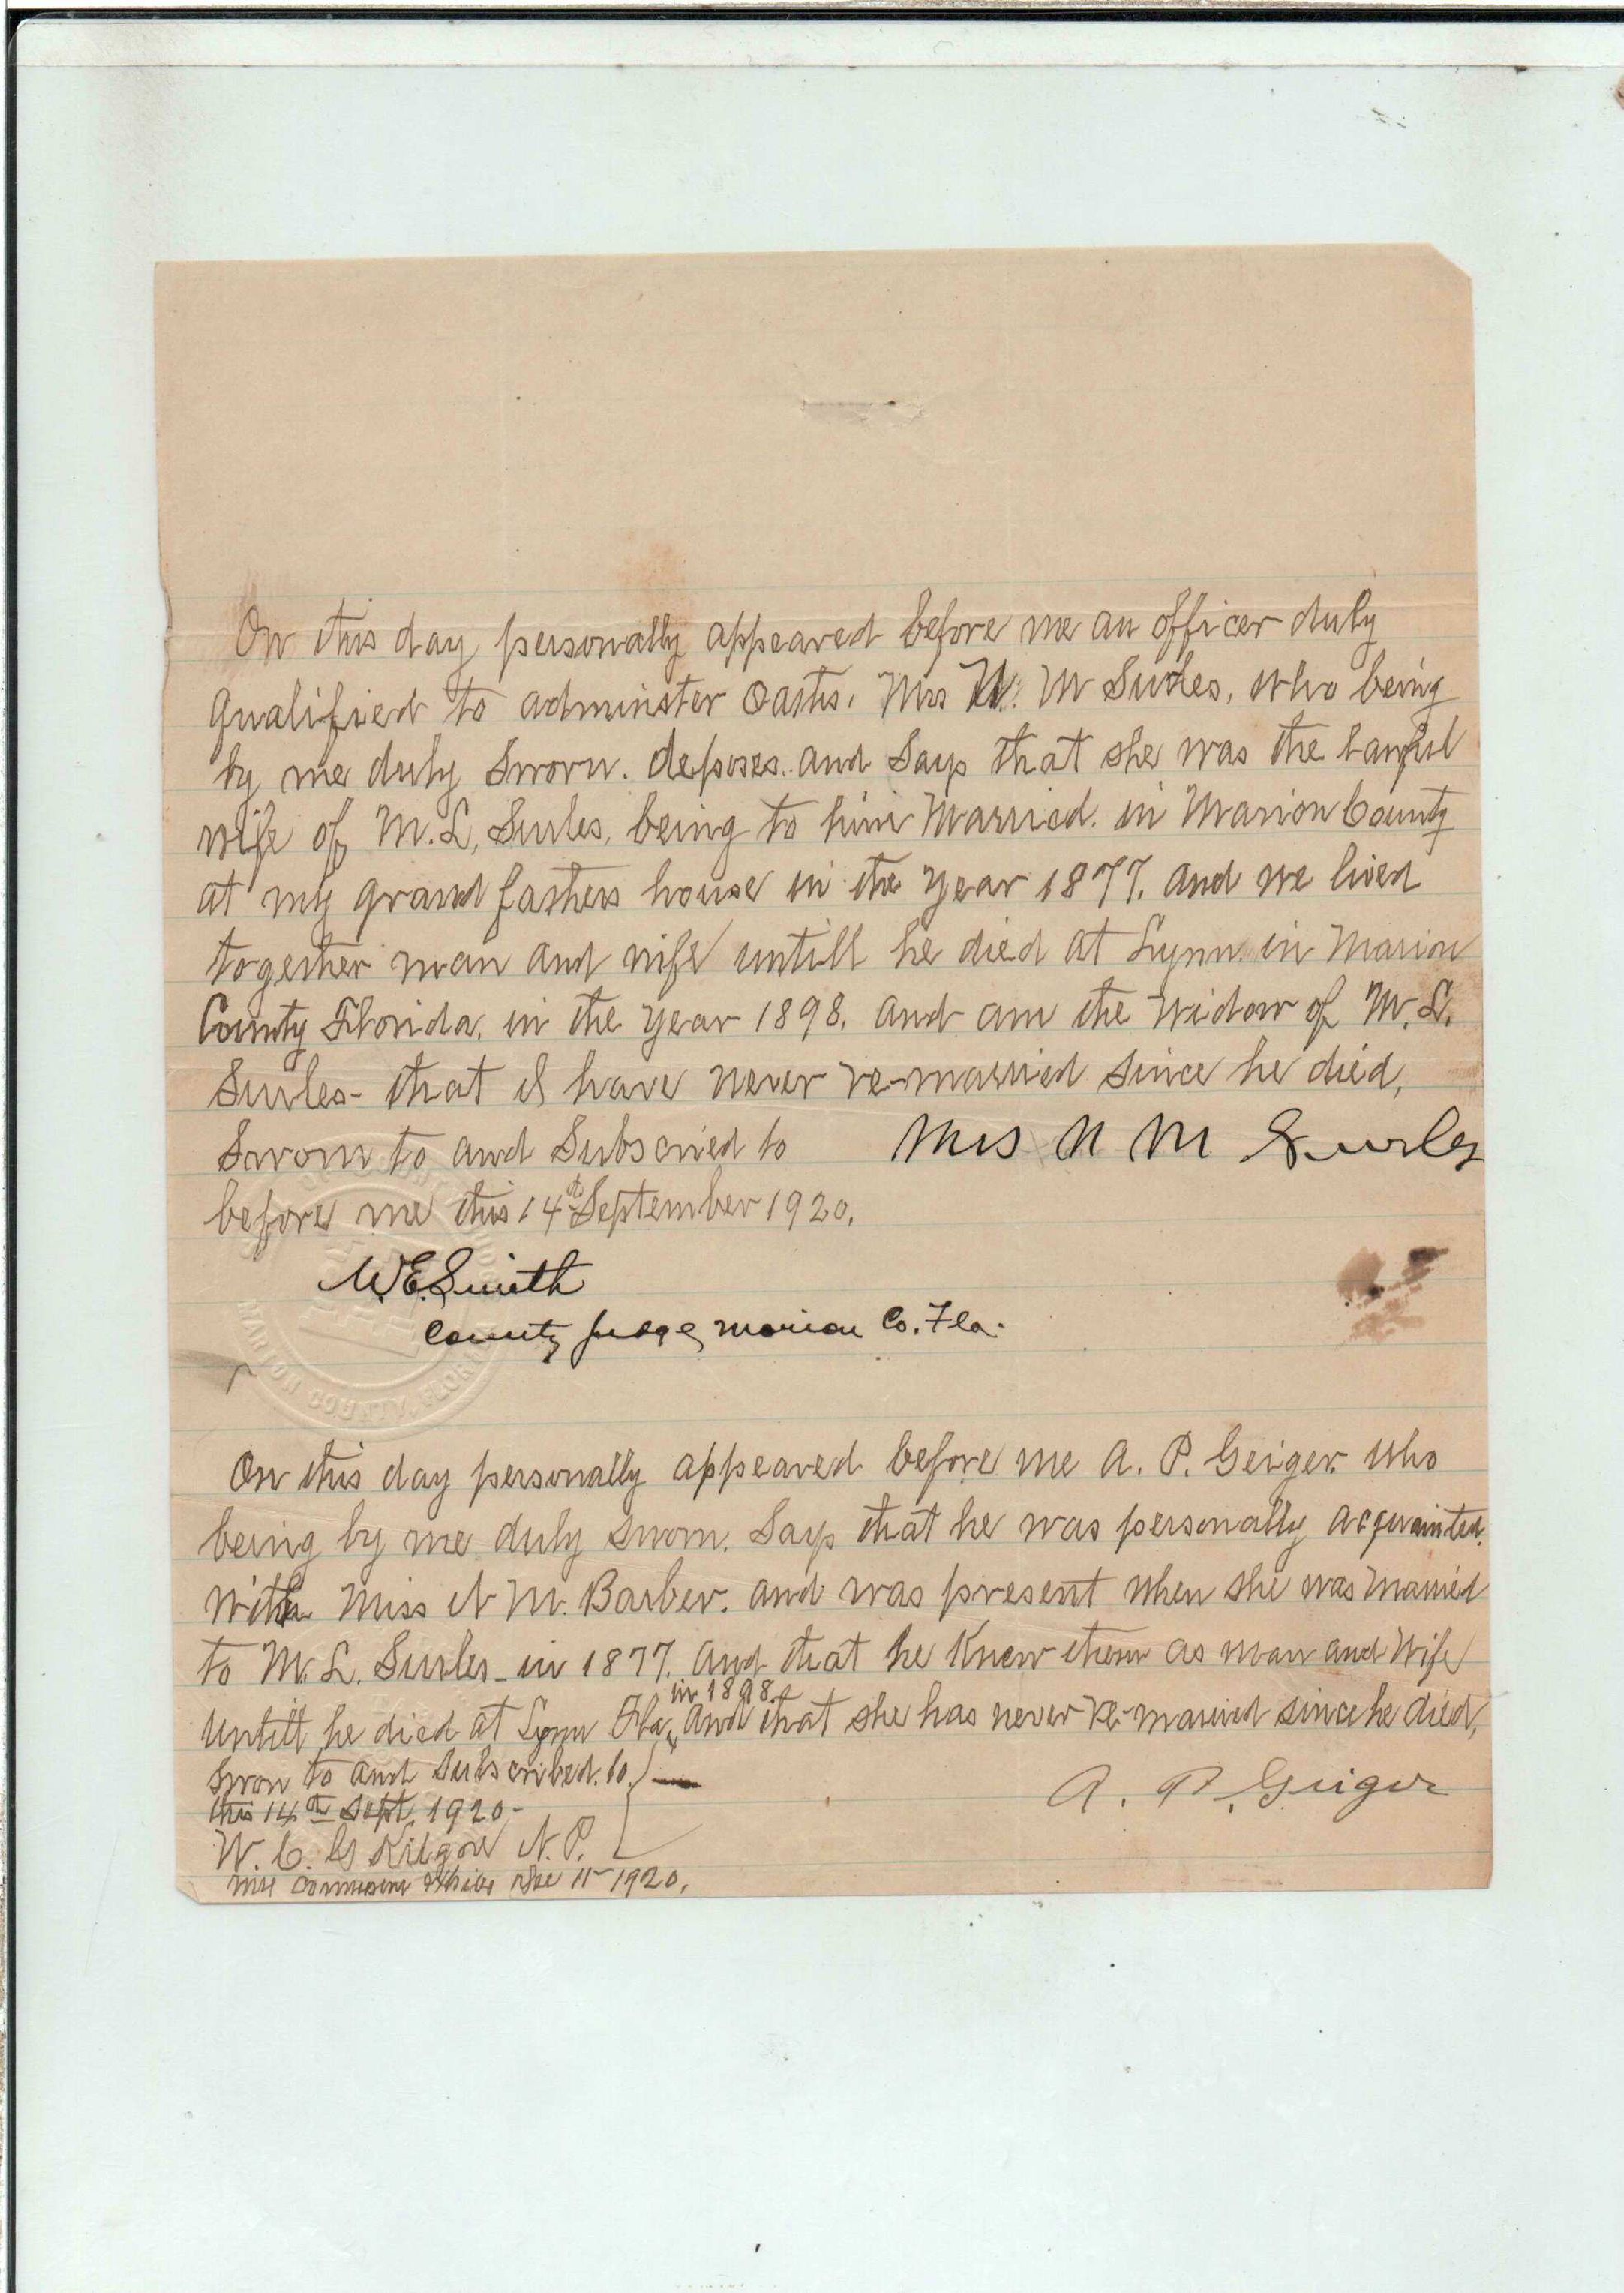 On this day personally appeared before me an officer duly
qualified to administer Oaths. Mrs N. M Surles, who being
by me duly Sworn. deposes. and Says that she was the lawful
wife of M. L, Surles, being to him Married. in Marion County
at my grand fathers house in the year 1877. and we lived
together man and wife untill he died at Lynn in Marion
County Florida. in the year 1898. and am the Widow of M. L.
Surles - that I have never re-married since he died,
Sworn to and Subscried to Mrs N M Surles
before me this 14th September 1920.
W.E. Smith
County Judge, Marion Co. Fla.
MARION COUNTY, FLORIDA
On this day personally appeared before me A. P. Geiger. who
being by me duly sworn. Says that he was personally acquainted.
with Miss N M. Barber. and was present when she was Married
to M. L. Surles - in 1877. and that he Knew them as man and Wife
in 1898.
untill he died at Lynn Fla, and that she has never re-married since he died,
Swon to and Subscribed. to.
this 14th Sept. 1920 - A. P. Geiger
W. C. G Kilgore N. P.
my Commission Expires Dec 11 - 1920.